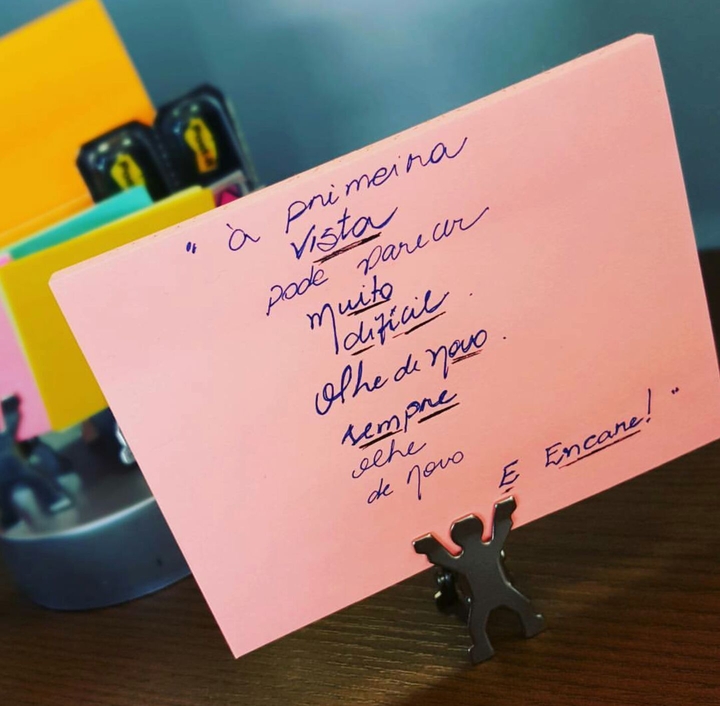 " à primeira
vista
pode parecer
muito
difícil.
Olhe de novo.
sempre
olhe
de novo
E Encare! "